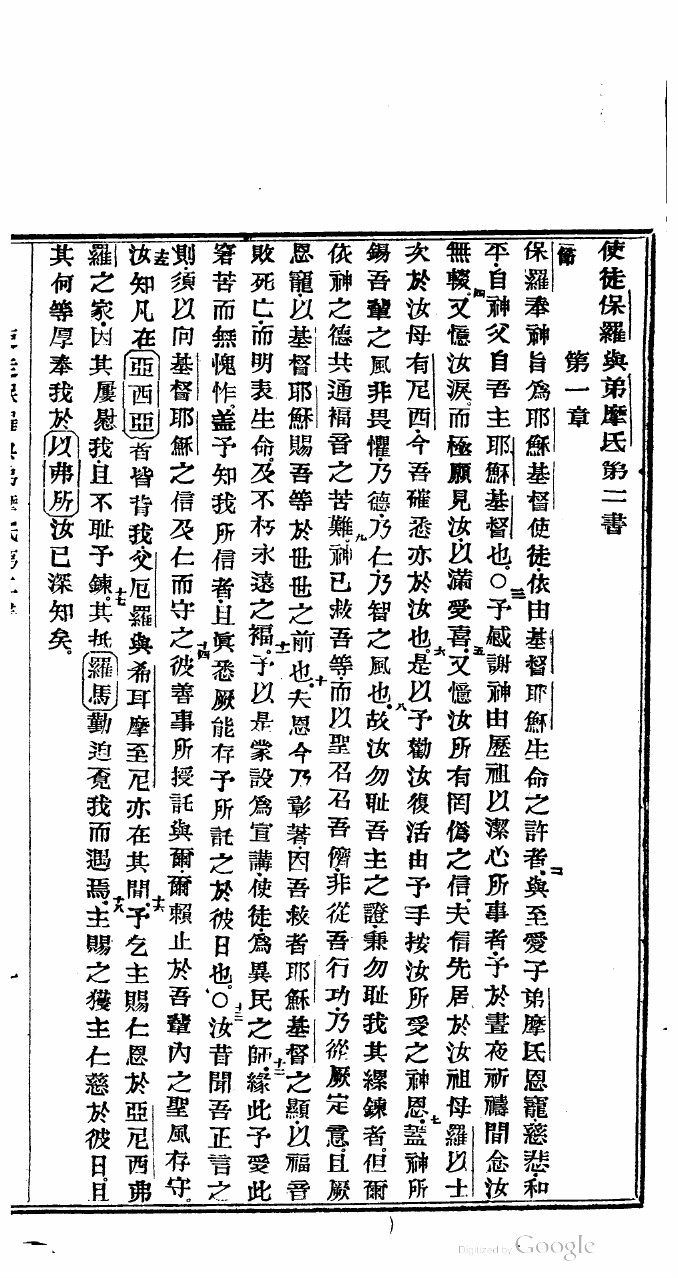 使徒保羅與弟摩氐第二書
第一章
節
保羅奉神旨爲耶穌基督使徒依由基督耶穌生命之許者二與至愛子弟摩氐恩寵慈悲和
平自神父自吾主耶穌基督也〇三予感謝神由歷祖以潔心所事者予於晝夜祈禱間念汝
無輟四又憶汝淚而極願見汝以滿愛喜五又憶汝所有罔僞之信夫信先居於汝祖母羅以士
次於汝母有尼西今吾確悉亦於汝也六是以予勸汝復活由予手按汝所受之神恩七蓋神所
錫吾輩之風非畏懼乃德乃仁乃智之風也八故汝勿耻吾主之證兼勿耻我其縲鍊者但爾
依神之德共通福音之苦難九神已救吾等而以聖召召吾儕非從吾行功乃從厥定意且厥
恩寵以基督耶穌賜吾等於世世之前也十夫恩今乃彰著因吾救者耶穌基督之顯以福音
敗死亡而明表生命及不朽永遠之福十一予以是蒙設爲宣講使徒爲異民之師十二緣此予受此
窘苦而無愧怍蓋予知我所信者且眞悉厥能存予所託之於彼日也〇十三汝昔聞吾正言之
則須以向基督耶穌之信及仁而守之十四彼善事所授託與爾爾賴止於吾輩內之聖風存守
十五汝知凡在亞西亞者皆背我父厄羅與希耳摩至尼亦在其間十六予乞主賜仁恩於亞尼西弗
羅之家因其屢慰我且不耻予鍊十七其抵羅馬勤迫覔我而遇焉十八主賜之獲主仁慈於彼日且
其何等厚奉我於以弗所汝已深知矣
Digitized by Google